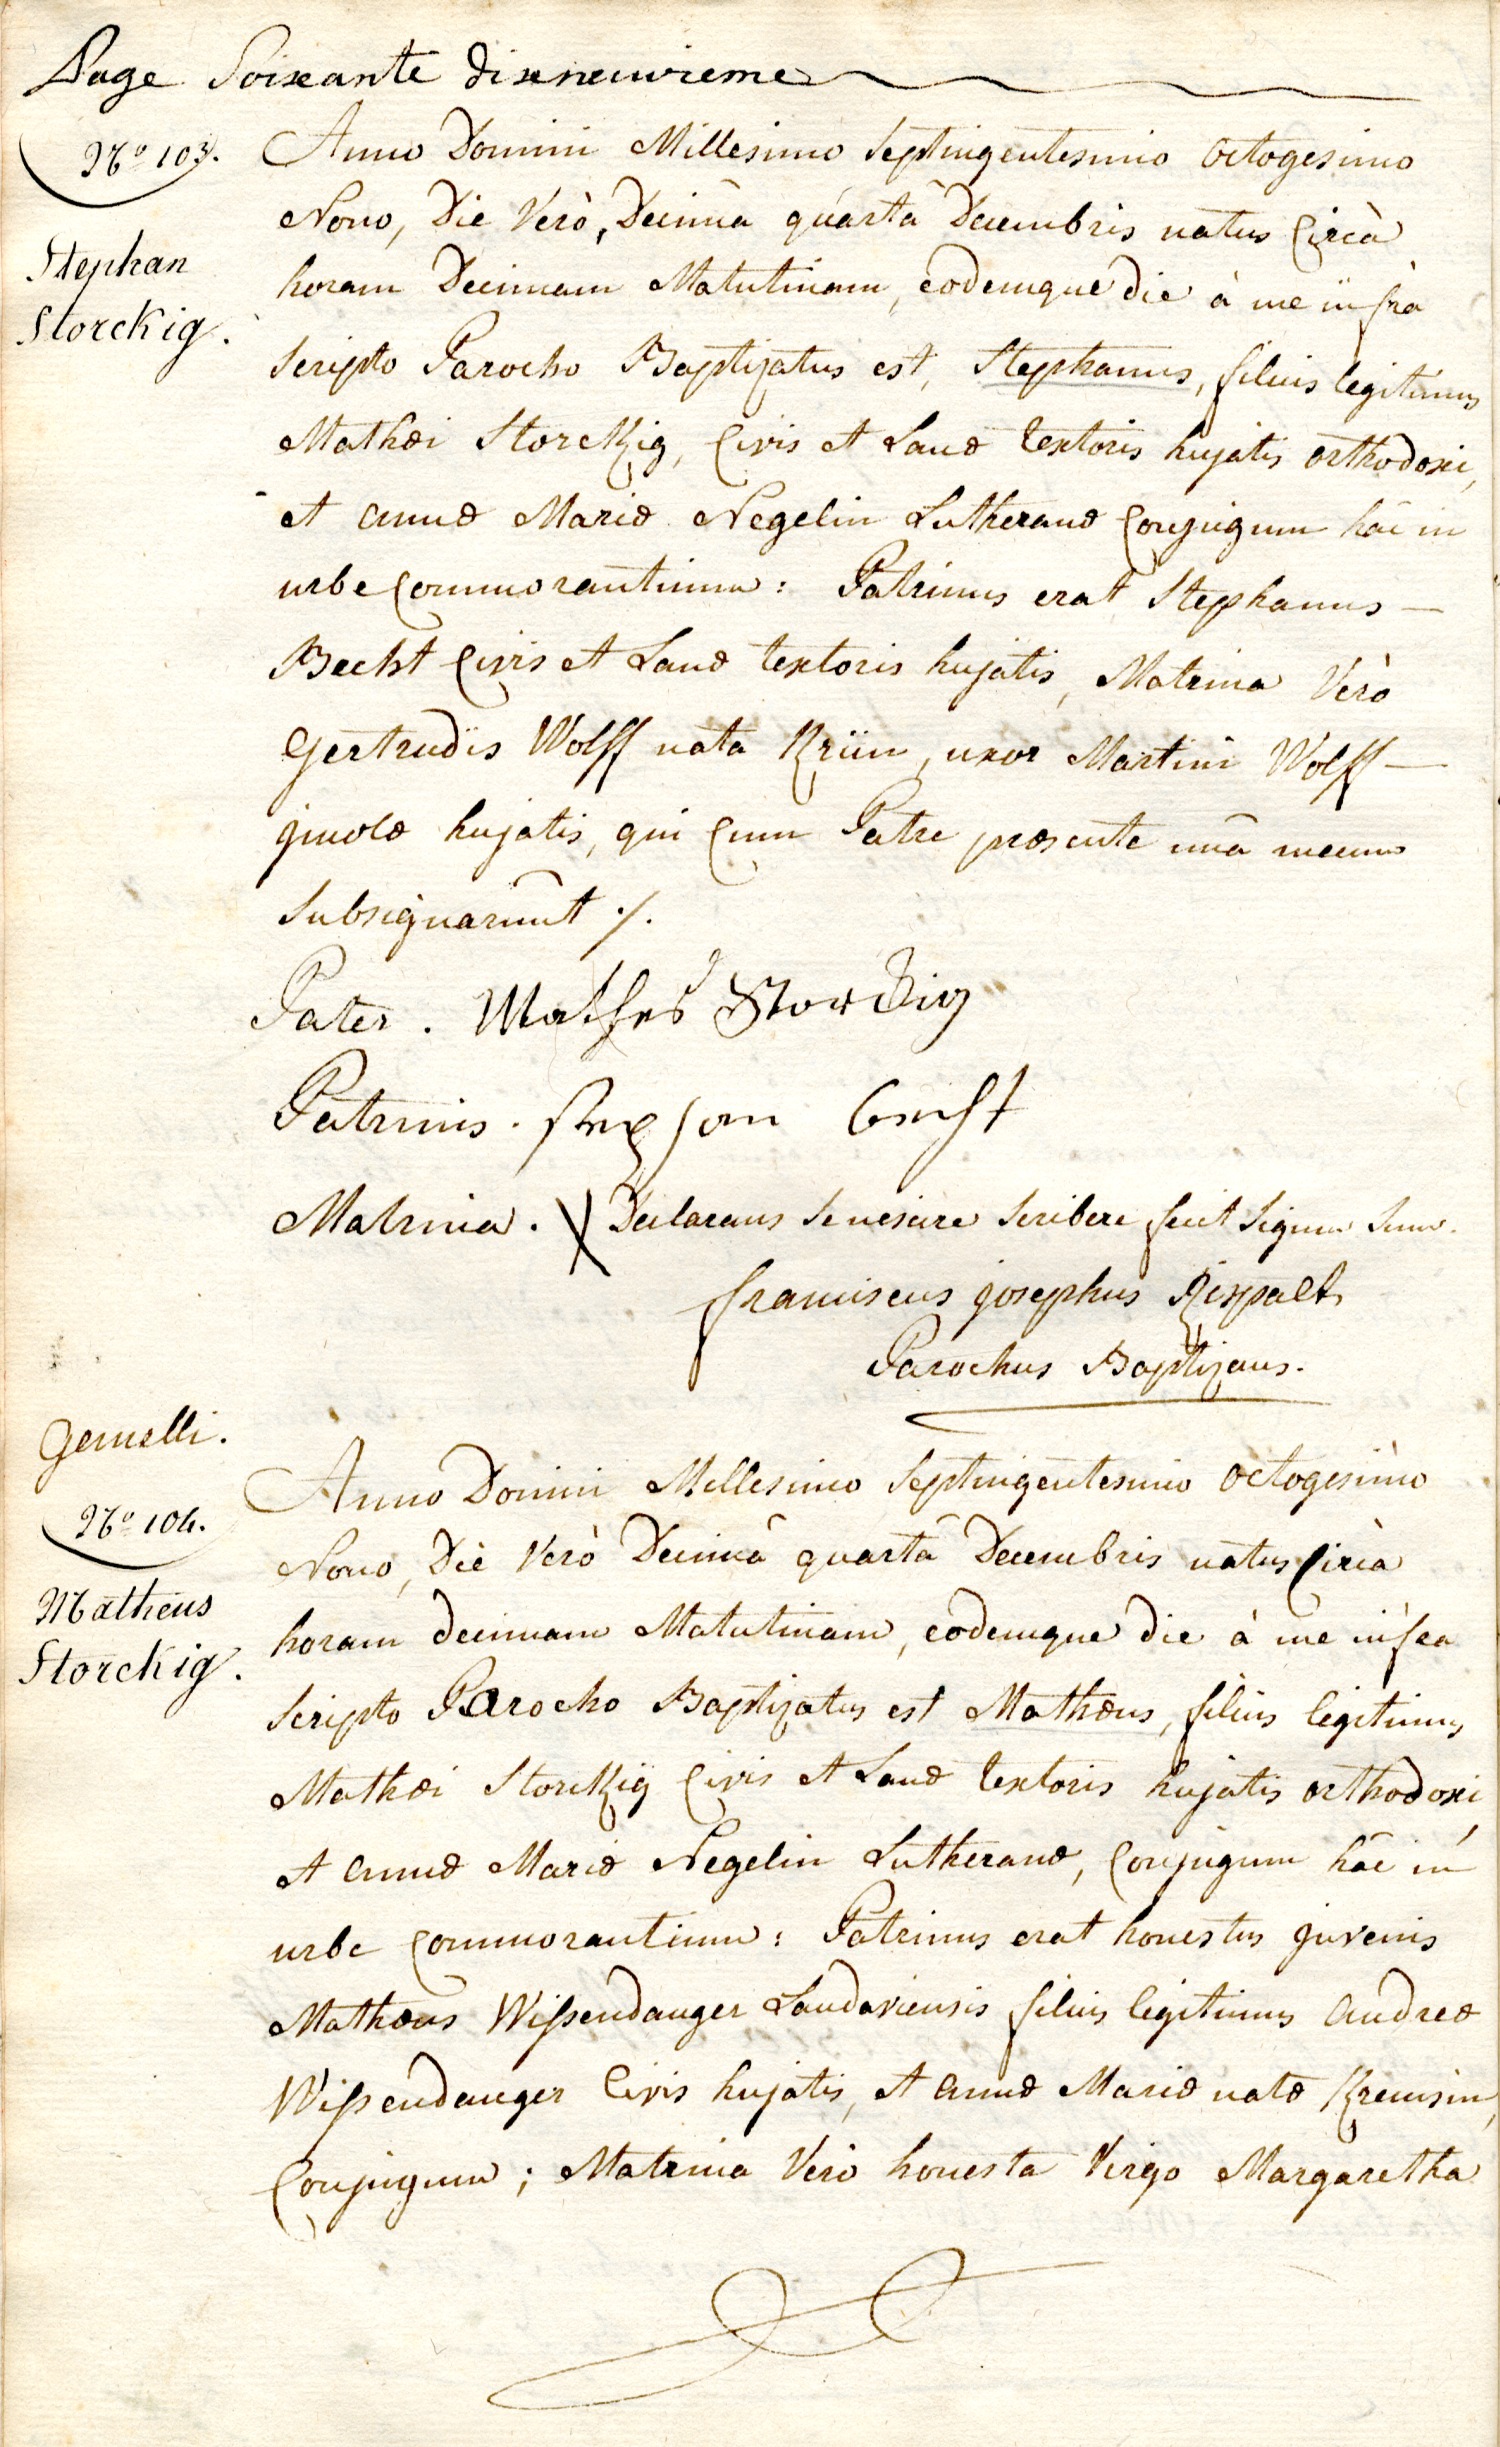 Page Soixante dixneuvieme
Nº 103.
Stephan
Storckig.
Anno Domini Millesimo Septingentesimo Octogesimo
Nono, Die Verò, Decimâ quartâ Decembris natus Circà
horam Decimam Matutinam, eodemque die à me infrà
Scripto Parocho Baptizatus est, Stephanus, filius legitimus
Mathæi Storckig, Civis et Lanæ textoris hujatis orthodoxi,
et annæ Mariæ Negelin Lutheranæ Conjugum hâc in
urbe Commorantium: Patrinus erat Stephanus —
Becht Civis et Lanæ textoris hujatis, Matrina Verò
Gertrudis Wolff nata Krün, uxor Martini Wolff —
jncolæ hujatis, qui Cum Patre præsente unâ mecum
Subsignarunt ./.
Pater. Mathes Storckig
Patrinus. Stephan becht
Matrina. X Declarans se nescire scribere fecit Signum Suum.
franciscus josephus Rexpalt
Parochus Baptizans.
Gemelli.
Nº 104.
Matheus
Storckig.
Anno Domini Millesimo Septingentesimo Octogesimo
Nono, Die Verò Decimâ quartâ Decembris natus Circà
horam decimam Matutinam, eodemque die à me infra
Scripto Parocho Baptizatus est Mathæus, filius legitimus
Mathæi Storckig Civis et Lanæ textoris hujatis orthodoxi,
et annæ Mariæ Negelin Lutheranæ, Conjugum hâc in
urbe Commorantium: Patrinus erat honestus juvenis
Mathæus Wissendanger Landaviensis filius legitimus andreæ
Wissendanger Civis hujatis, et annæ Mariæ natæ Kremsin,
Conjugum; Matrina Verò honesta Virgo Margaretha